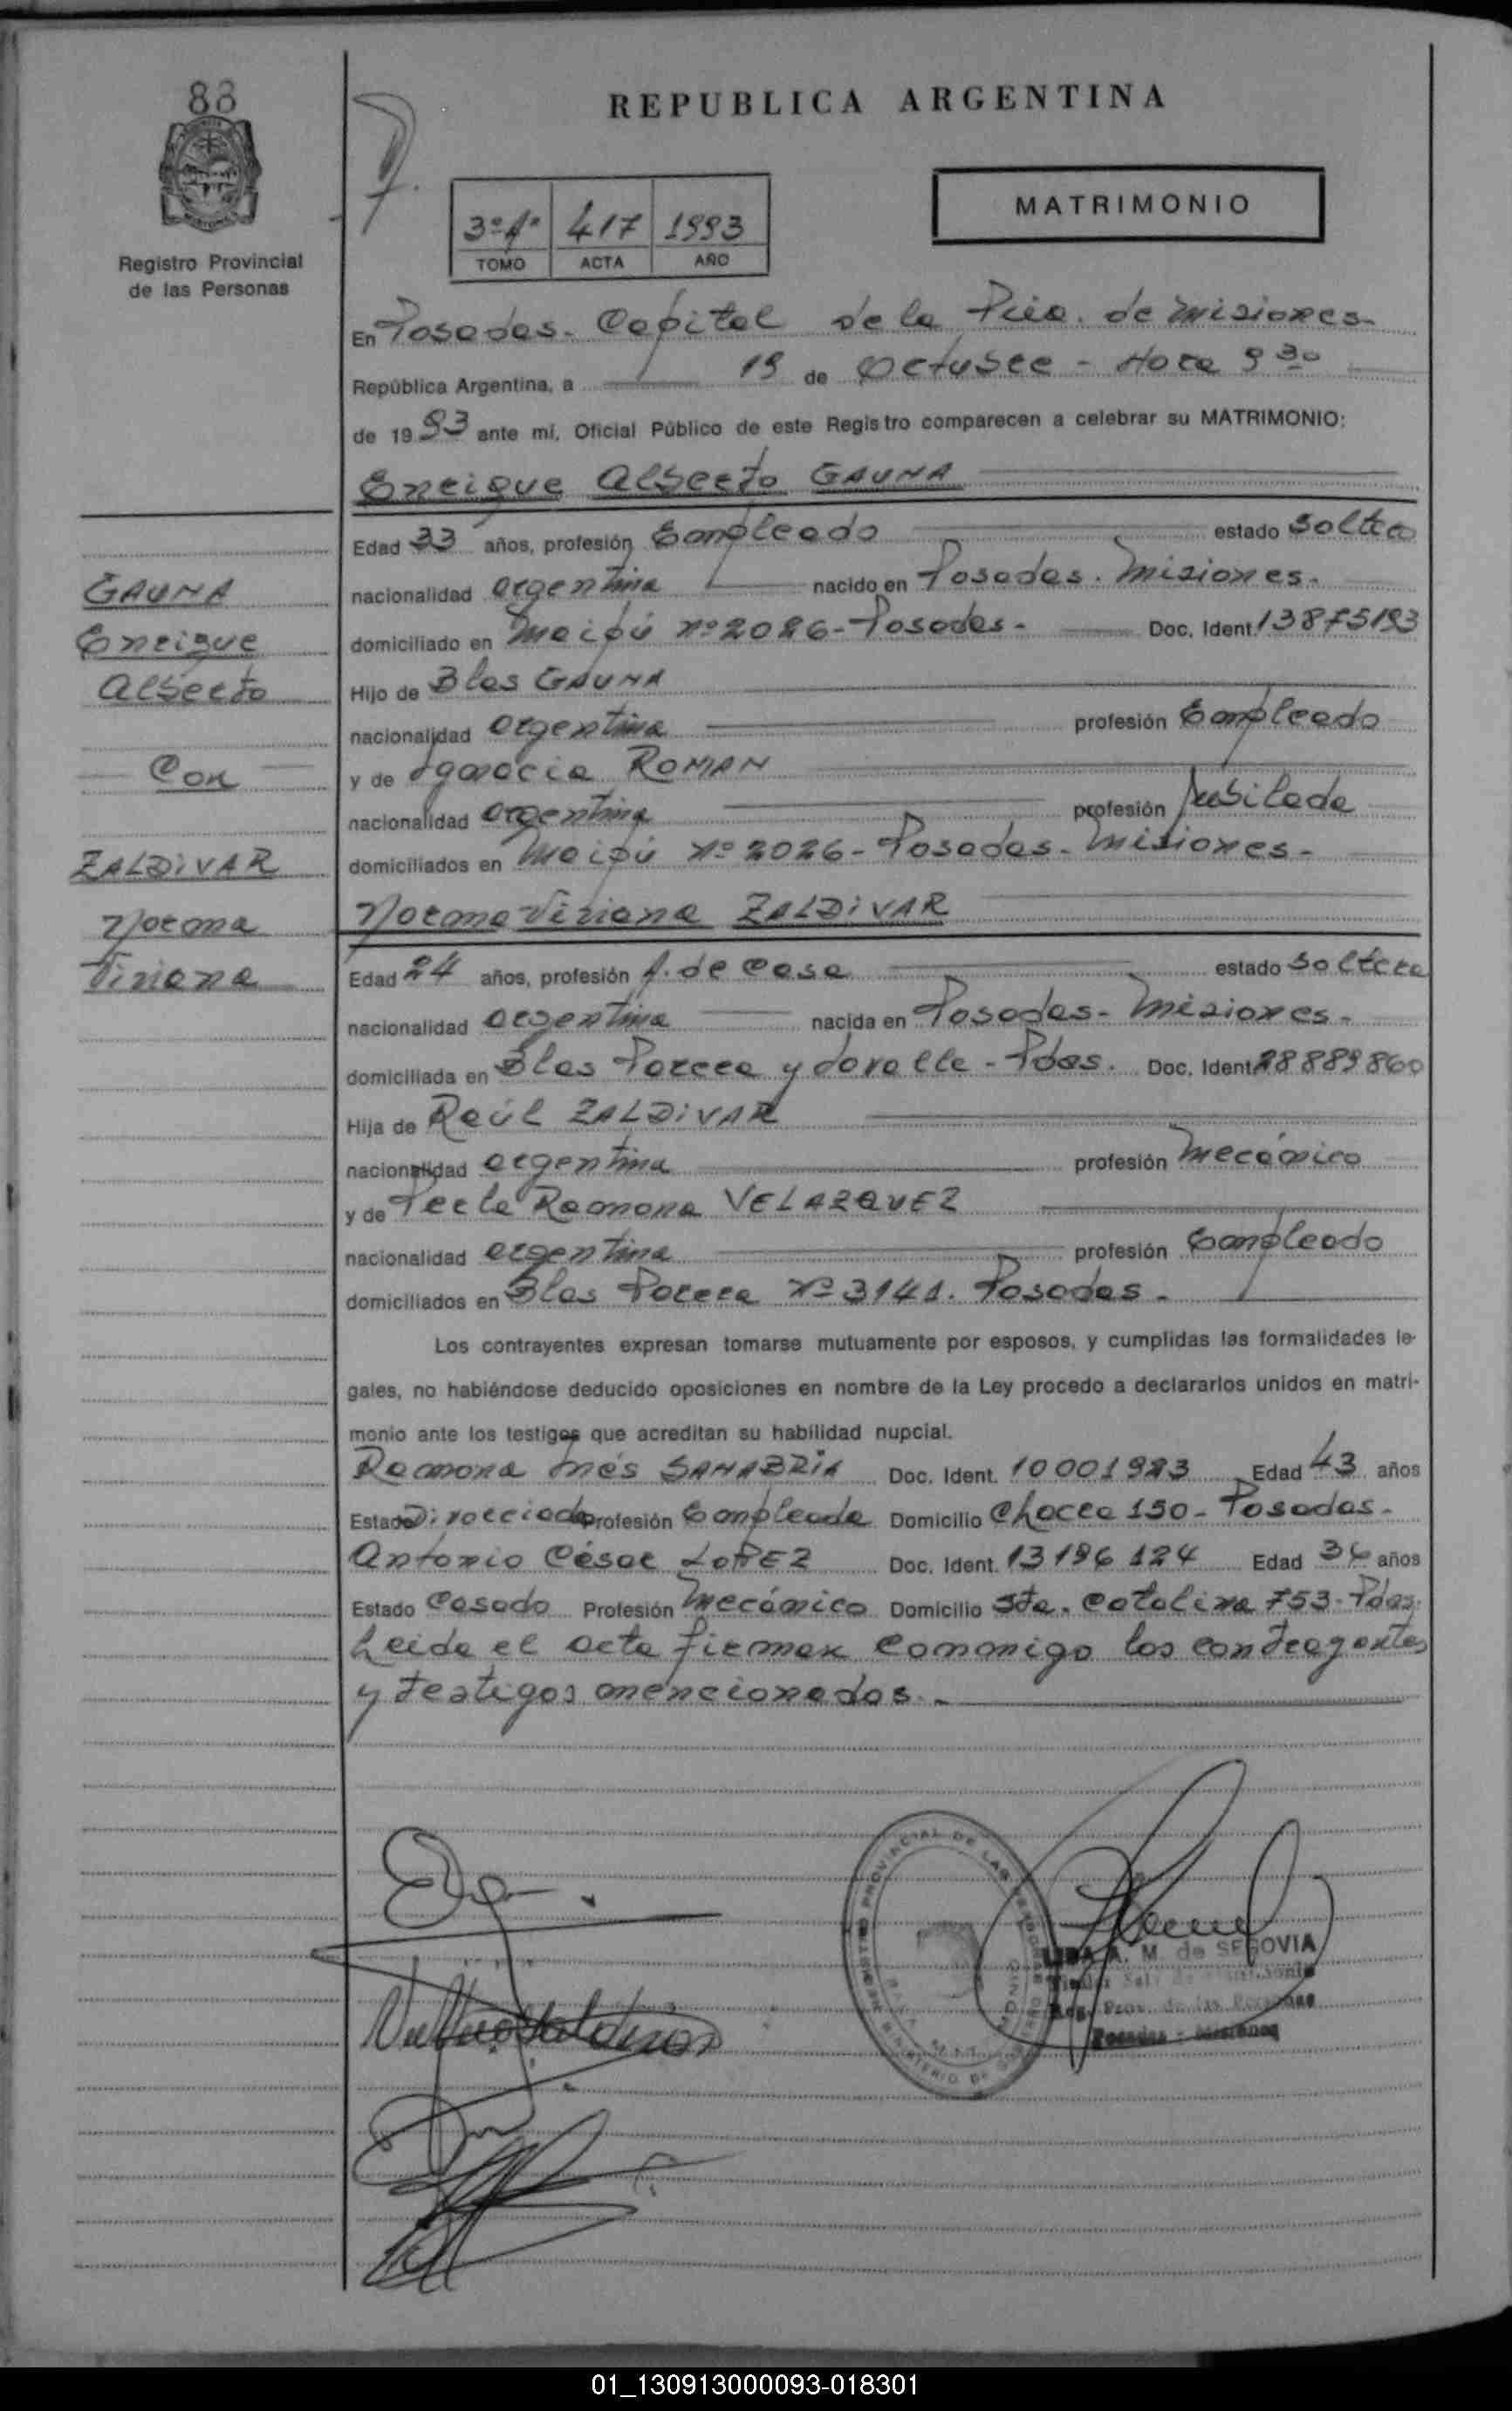 88
REPUBLICA ARGENTINA
MATRIMONIO
3º Aº 417 1993
TOMO ACTA AÑO
Registro Provincial
de las Personas
En Posadas. Capital de la Pcia. de Misiones
República Argentina, a 19 de Octubre - Hora 9 30
de 1993 ante mí, Oficial Público de este Registro comparecen a celebrar su MATRIMONIO:
Enrique Alberto GAUNA
Edad 33 años, profesión Empleado estado soltero
nacionalidad argentina nacido en Posadas. Misiones.
domiciliado en Maipú nº 2026 - Posadas - Doc. Ident. 13875193
Hijo de Blas GAUNA
nacionalidad argentina profesión Empleado
y de Ignacia ROMAN
nacionalidad argentina profesión Jubilada
domiciliados en Maipú nº 2026 - Posadas - Misiones -
Norma Viviana ZALDIVAR
Edad 24 años, profesión A. de Casa estado soltera
nacionalidad argentina nacida en Posadas - Misiones -
domiciliada en Blas Parera y Lavalle - Pdas. Doc. Ident. 28889860
Hija de Raúl ZALDIVAR
nacionalidad argentina profesión Mecánico
y de Perla Ramona VELAZQUEZ
nacionalidad argentina profesión Empleado
domiciliados en Blas Parera Nº 3141. Posadas -
Los contrayentes expresan tomarse mutuamente por esposos, y cumplidas las formalidades le-
gales, no habiéndose deducido oposiciones en nombre de la Ley procedo a declararlos unidos en matri-
monio ante los testigos que acreditan su habilidad nupcial.
Ramona Inés SANABRIA Doc. Ident. 10001983 Edad 43 años
Estado Divorciada Profesión Empleada Domicilio Chacra 150 - Posadas -
Antonio César LOPEZ Doc. Ident. 13196124 Edad 36 años
Estado Casado Profesión Mecánico Domicilio Sta. Catalina 753 - Pdas.
Leida el acta firman conmigo los contrayentes
y testigos mencionados. -
GAUNA
Enrique
Alberto
Con
ZALDIVAR
Norma
Viviana
A. M. de SEGOVIA
Reg. Prov. de las Personas
Posadas - Misiones
01_130913000093-018301